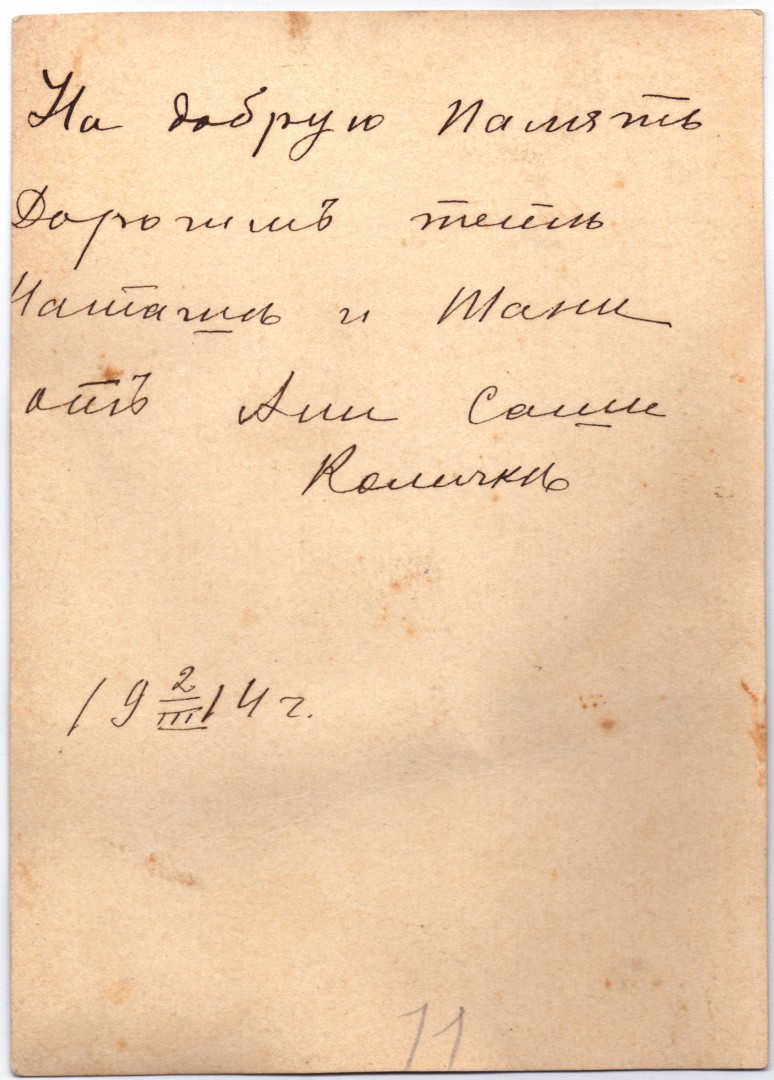 На добрую Память
Дорогимъ тетѣ
Наташѣ и Тани
отъ Ани Саши
Количкѣ
19 2/III 14 г.
11